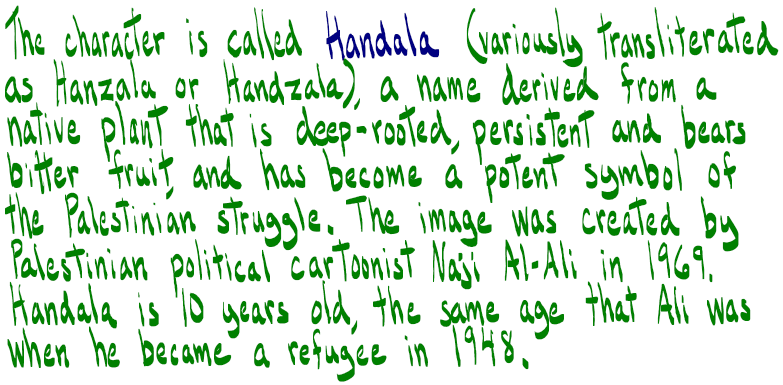 The character is called Handala (variously transliterated
as Hanzala or Handzala), a name derived from a
native plant that is deep-rooted, persistent and bears
bitter fruit, and has become a potent symbol of
the Palestinian struggle. The image was created by
Palestinian political cartoonist Naji Al-Ali in 1969.
Handala is 10 years old, the same age that Ali was
when he became a refugee in 1948.